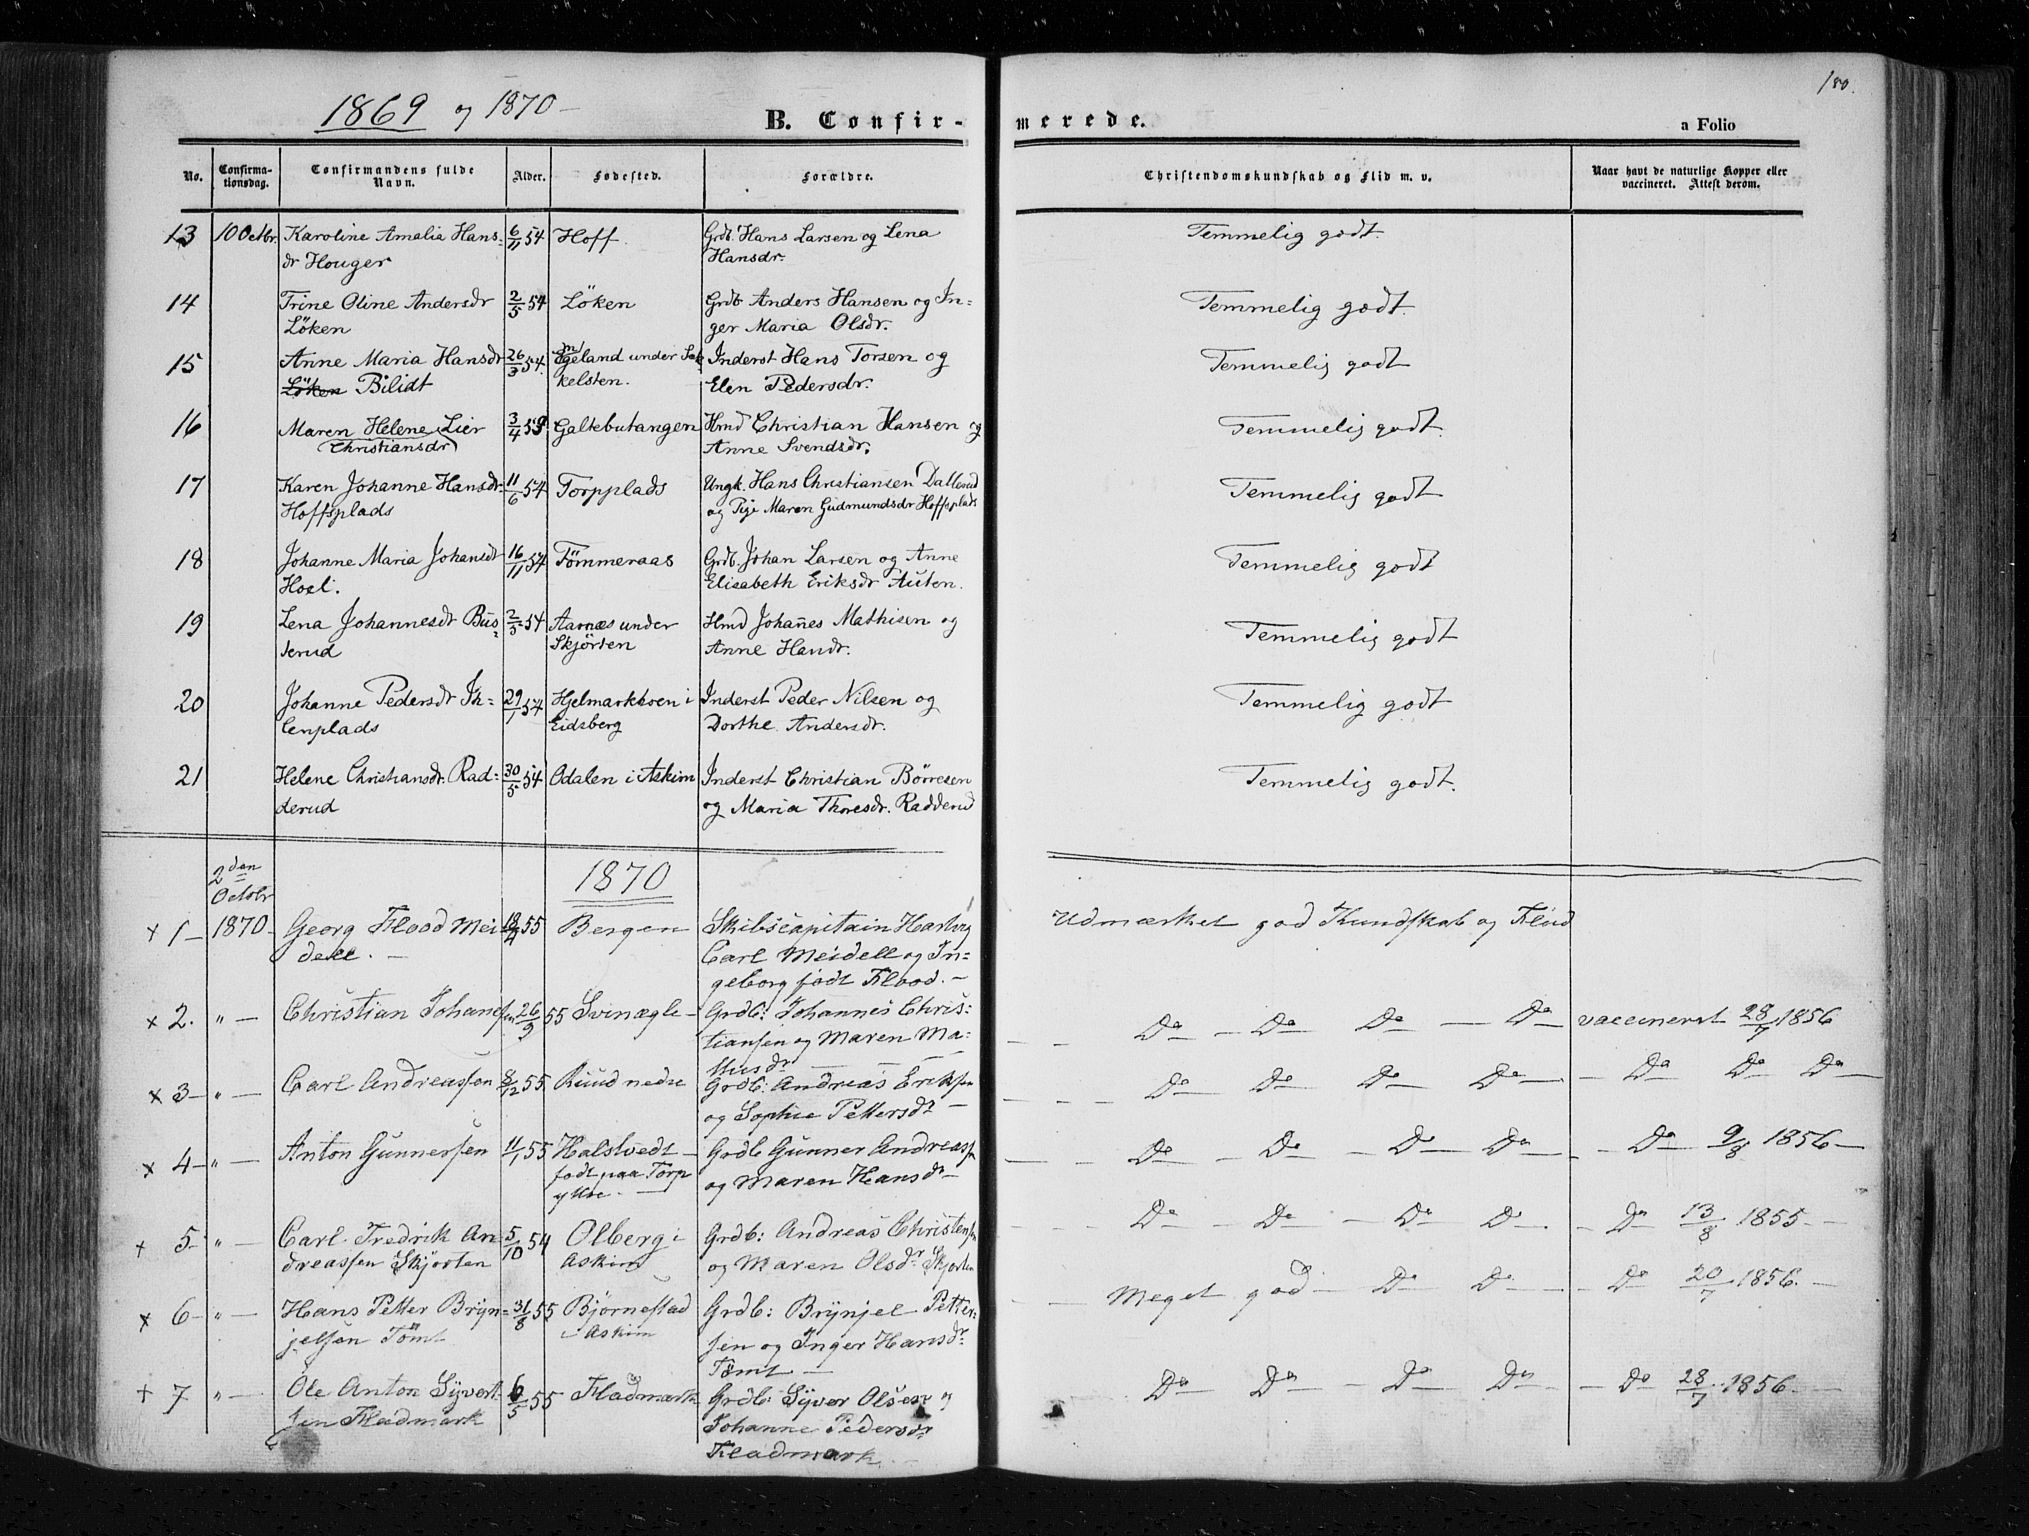 180.
1869 og 1870 –
B. Confir-
merede.
a Folio
No.
Confirma-
tionsdag.
Confirmandens fulde
Navn.
Alder.
Fødested.
Forældre.
Christendomskundskab og Flid m. v.
Naar havt de naturlige Kopper eller
vaccineret. Attest derom.
13 10 Octbr. Karoline Amalia Hans- 6/11 54 Hoff. Grdb. Hans Larsen og Lena Temmelig godt.
dr Houger Hansdr.
14 Trine Oline Andersdr 2/5 54 Löken Grdb Anders Hansen og In= Temmelig godt.
Löken ger Maria Olsdr.
15 Anne Maria Hansdr 26/3 54. Egeland under Sek Inderst Hans Torsen og Temmelig godt
Löken Bilidt kelsten. Elen Pedersdr.
16 Maren Helene Lier 3/4 53 Galtebutangen Hmd Christian Hansen og Temmelig godt.
Christiansdr Anne Svendsdr.
17 Karen Johanne Hansdr. 11/6 54 Torpplads Ungk. Hans Christiansen Dallerud Temmelig godt
Hoffsplads og Pige Maren Gudmundsdr Hoffsplads
18 Johanne Maria Johansdr 16/11 54 Tömmeraas Grdb. Johan Larsen og Anne Temmelig godt
Hoel. Elisabeth Eriksdr Auten.
19 Lena Johannesdr Bus= 2/5 54 Aarnæs under Hmd Johan̄es Mathisen og Temmelig godt
terud Skjörten Anne Handr.
20 Johanne Pedersdr Ih= 29/1 54 Hjelmarkboen i Inderst Peder Nilsen og Temmelig godt
lenplads Eidsberg Dorthe Andersdr.
21 Helene Christiansdr. Rad= 30/5 54 Odalen i Askim Inderst Christian Börresen Temmelig godt.
derud og Maria Thoresdr. Radderud
2den
Octobr
1870
× 1 – 1870 – Georg Flood Mei 18/4 55 Bergen Skibscapitain Hartvig Udmærket god Kundskab og Fliid
dell. – Carl Meidell og In=
geborg født Flood. –
× 2. " – Christian Johansen 26/9 55 Svinægle – Grdb: Johannes Chris= Do – Do Do – Do vaccineret 28/7 1856
tiansen og Maren Ma=
thisdr
× 3 – " – Carl Andreassen 8/12 55 Ruud nedre Grdb: Andreas Eriksen Do Do Do Do – Do Do Do
og Sophie Pettersdr –
× 4 – " – Anton Gunnersen 11/1 55 Halstvedt – Grdb Gunner Andreassen Do – Do – Do – Do – Do 9/8 1856 –
født paa Torp og Maren Hansdr –
ytre. –
+ 5 – " – Carl Fredrik An 5/10 54 Olberg i Grdb: Andreas Christensen Do – Do – Do – Do – Do 13/8 1855 –
dreassen Skjorten Askim og Maren Olsdr Skjorten
× 6 – " – Hans Petter Bryn= 31/8 55 Bjørnestad Grdb: Brynjel Petter= Meget god – Do – Do – Do 20/7 1856. –
jelsen Tømt i Askim sen og Inger Hansdr
Tømt –
+ 7 " – Ole Anton Syvert 6/5 55 Fladmark Grdb: Syver Olsen og Do Do – Do – Do – Do 28/7 1856 –
sen Fladmark Johanne Pedersdr
Fladmark.